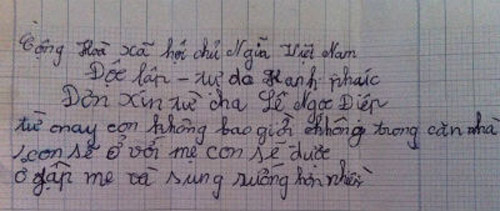 Cộng Hoà xã hội chủ Nghĩa Việt Nam
Độc lập - tự do Hạnh phúc
Đơn xin từ cha Lê Ngọc Điệp
từ nay con không bao giờ không trong căn nhà
con sẽ ở với mẹ con sẽ được
ở gần mẹ và sung sướng hơn nhiều